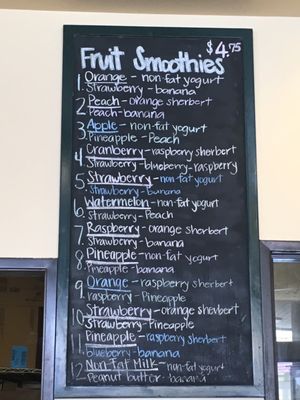 Fruit Smoothies $4.75
1 Orange - non-fat yogurt
Strawberry - banana
2 Peach - orange sherbert
Peach - banana
3 Apple - non-fat yogurt
Pineapple - Peach
4 Cranberry - raspberry sherbert
Strawberry - blueberry - raspberry
5 Strawberry - non-fat yogurt
Strawberry - banana
6 Watermelon - non-fat yogurt
Strawberry - Peach
7 Raspberry - orange sherbert
Strawberry - banana
8 Pineapple - non-fat yogurt
Pineapple - banana
9 Orange - raspberry sherbert
raspberry - Pineapple
10 Strawberry - orange sherbert
Strawberry - Pineapple
11 Pineapple - raspberry sherbert
blueberry - banana
12 Non-Fat Milk - non-fat yogurt
Peanut butter - banana